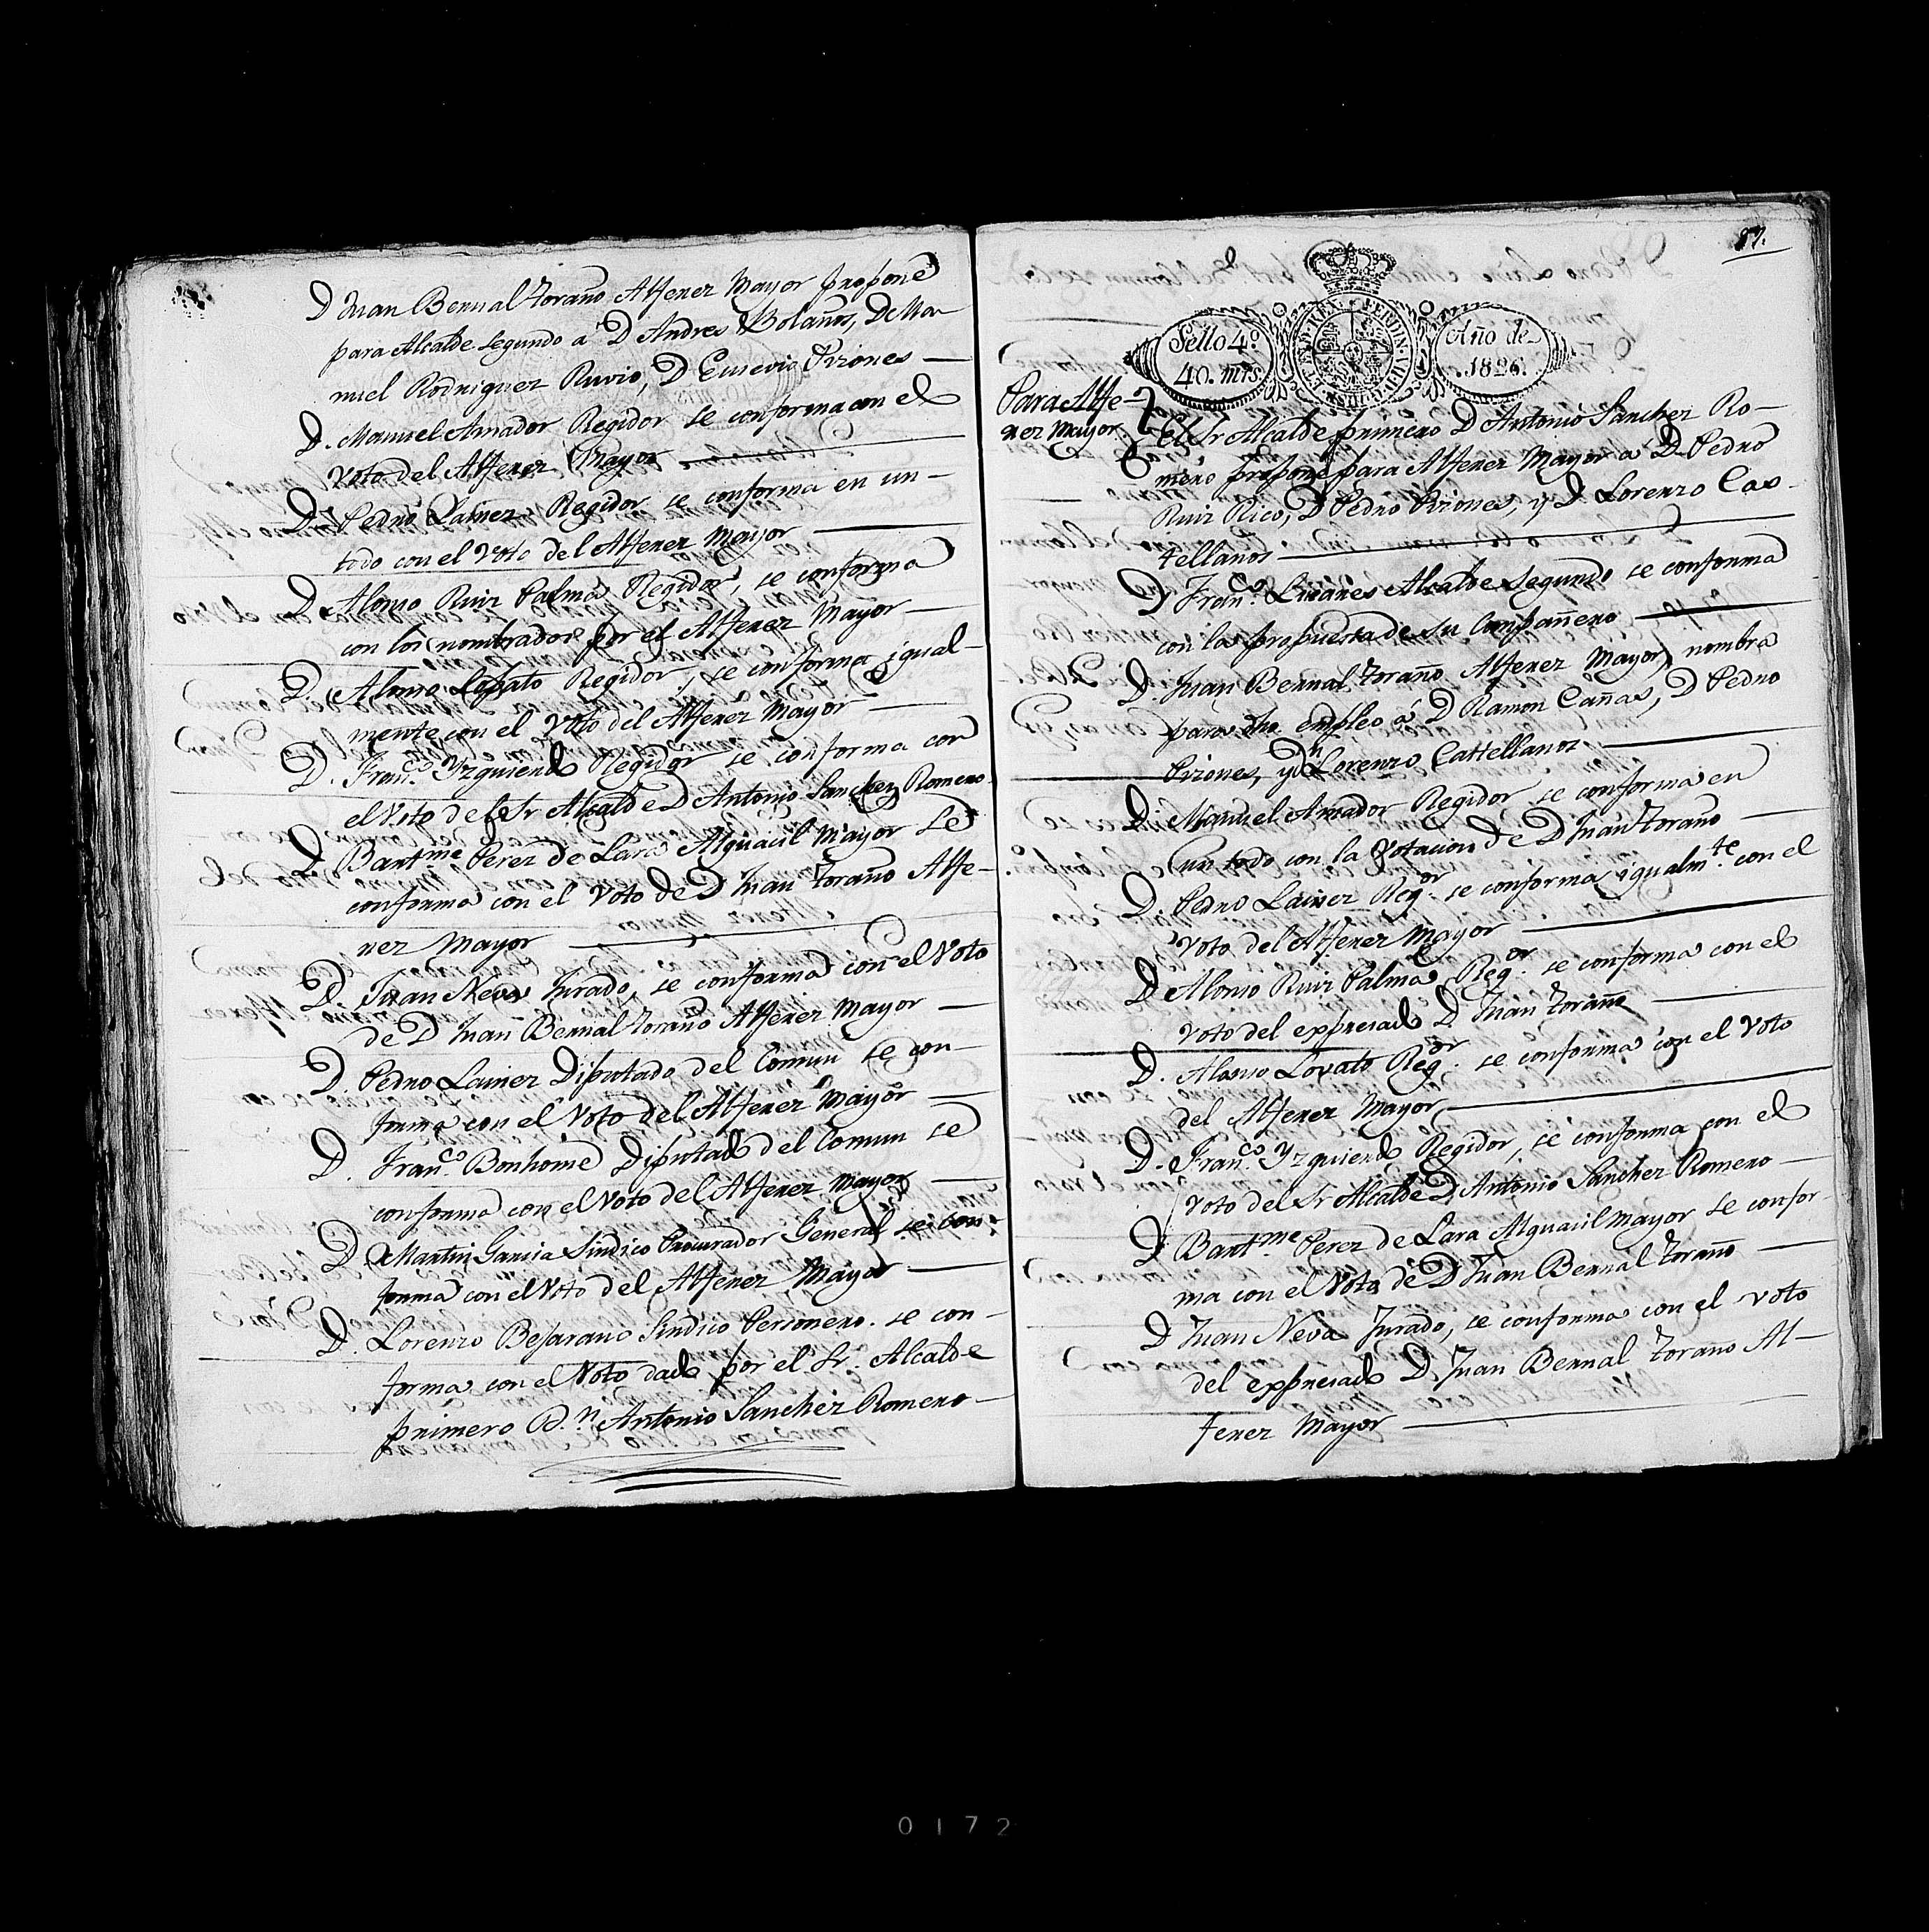 D Juan Bernal Toraño Alferez Mayor propone
para Alcalde segundo á D Andres Bolaños, D Ma-
nuel Rodriguez Ruvio, D Eusevio Piriones
D. Manuel Amador Regidor se conforma con el
Voto del Alferez Mayor
D. Pedro Lainez Regidor se conforma en un
todo con el Voto del Alferez Mayor
D. Alonso Ruiz Palma Regidor, se conforma
con los nombrados por el Alferez Mayor
D. Alonso Lobato Regidor, se conforma igual-
mente con el Voto del Alferez Mayor
D. Franco. Yzquierdo Regidor se conforma con
el Voto del Sr Alcalde D Antonio Sanchez Romero
D. Bartme Perez de Lara Alguacil Mayor se
conforma con el Voto de D Juan Toraño Alfe-
rez Mayor
D. Juan Neva Jurado, se conforma con el Voto
de D Juan Bernal Toraño Alferez Mayor
D. Pedro Lainez Diputado del Comun se con-
forma con el Voto del Alferez Mayor
D. Franco. Bonhome Diputado del Comun se
conforma con el Voto del Alferez Mayor
D. Martin Garcia Sindico Procurador General se con-
forma con el Voto del Alferez Mayor
D. Lorenzo Bejarano Sindico Personero. se con-
forma con el Voto dado por el Sr. Alcalde
primero D.n Antonio Sanchez Romero
87.
Sello 4º
40. mrs.
Año de
1826.
Para Alfe-
rez Mayor
El Sr Alcalde primero D Antonio Sanchez Ro-
mero propone para Alferez Mayor á D Pedro
Ruiz Rico, D Pedro Piriones, y D Lorenzo Cas-
tellanos
D Franco. Linares Alcalde segundo se conforma
con la propuesta de su Compañero
D. Juan Bernal Toraño Alferez Mayor, nombra
para dho. empleo á D Ramon Cañas, D Pedro
Piriones, y Dn Lorenzo Castellanos
D. Manuel Amador Regidor se conforma en
un todo con la Votacion de D Juan Toraño
D. Pedro Lainez Regor. se conforma igualmte. con el
Voto del Alferez Mayor
D Alonso Ruiz Palma Regor. se conforma con el
Voto del expresado D. Juan Toraño
D. Alonso Lovato Regor. se conforma con el Voto
del Alferez Mayor
D. Franco. Yzquierdo Regidor, se conforma con el
Voto del Sr Alcalde D. Antonio Sanchez Romero
D. Bartme Perez de Lara Alguacil mayor se confor-
ma con el Voto de D Juan Bernal Toraño
D Juan Neva Jurado, se conforma con el voto
del expresado D. Juan Bernal Toraño Al-
ferez Mayor
0172